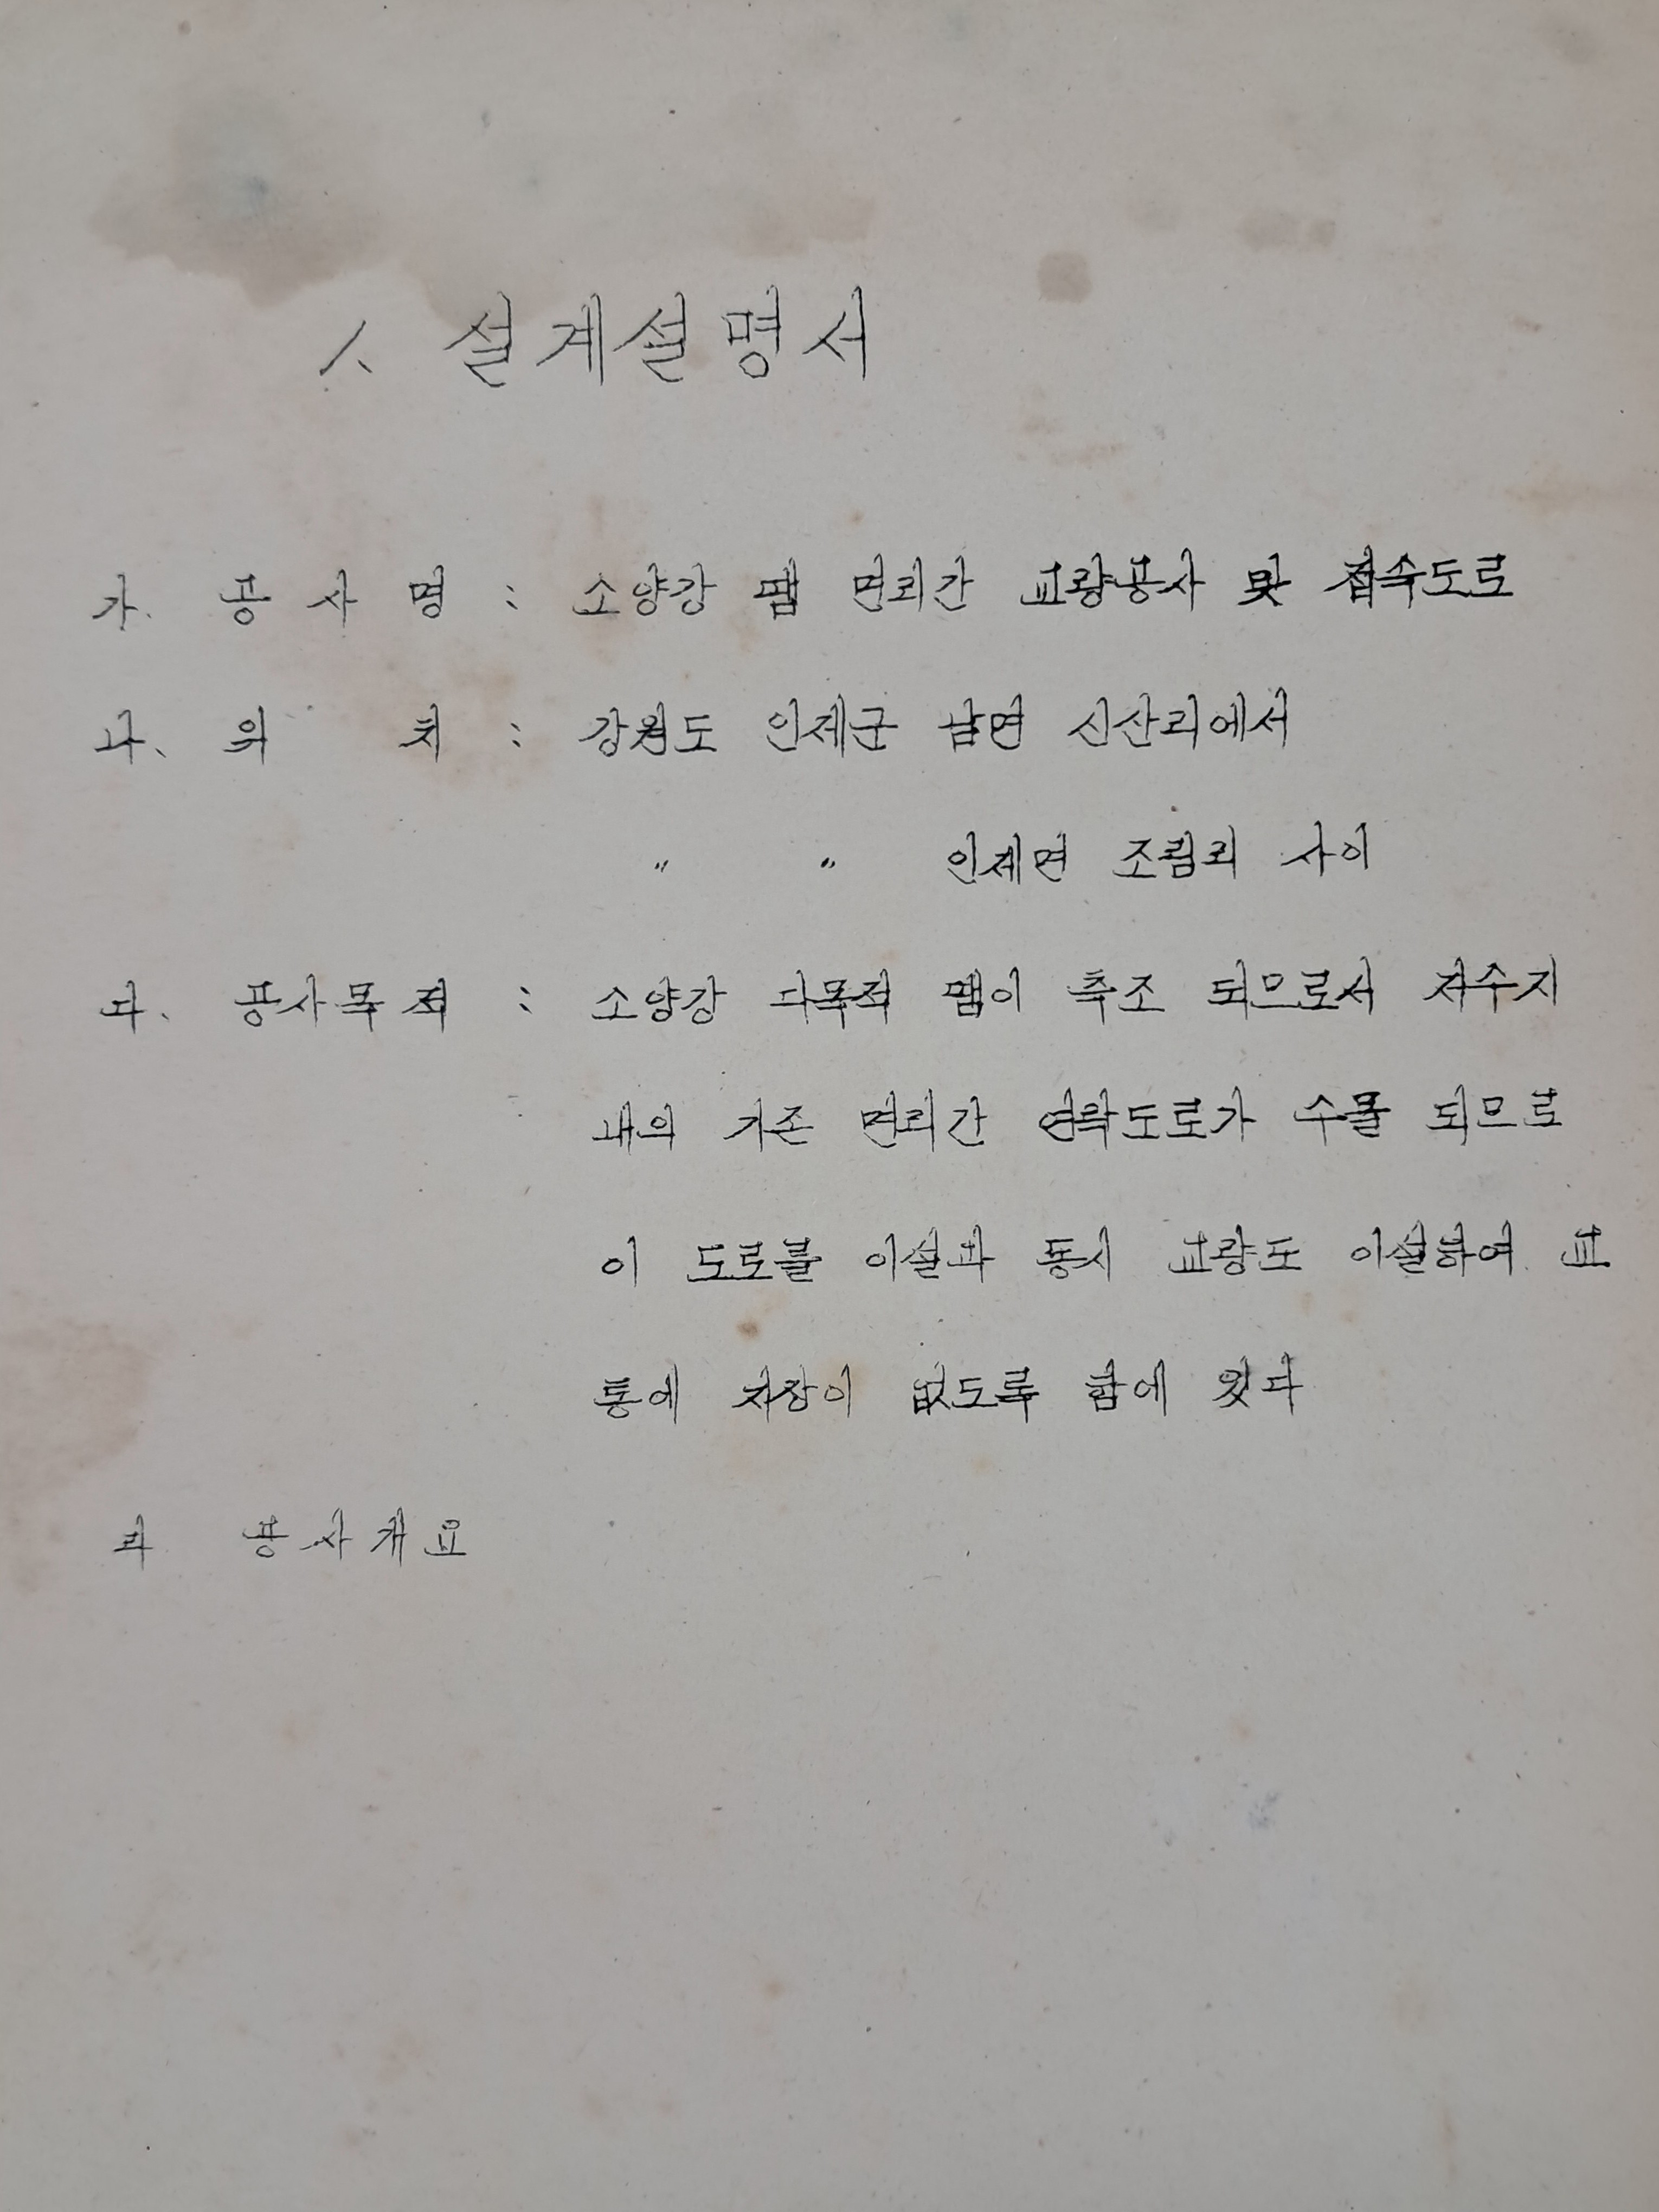 1. 설계설명서
가. 공 사 명 : 소양강 땜 면리간 교량공사 및 접속도로
나. 위 치 : 강원도 인제군 남면 신산리에서
〃 〃 인제면 조림리 사이
다. 공사목적 : 소양강 다목적 땜이 축조 되므로서 저수지
내의 기존 면리간 연락도로가 수몰 되므로
이 도로를 이설과 동시 교량도 이설하여 교
통에 지장이 없도록 함에 있다
라 공사개요